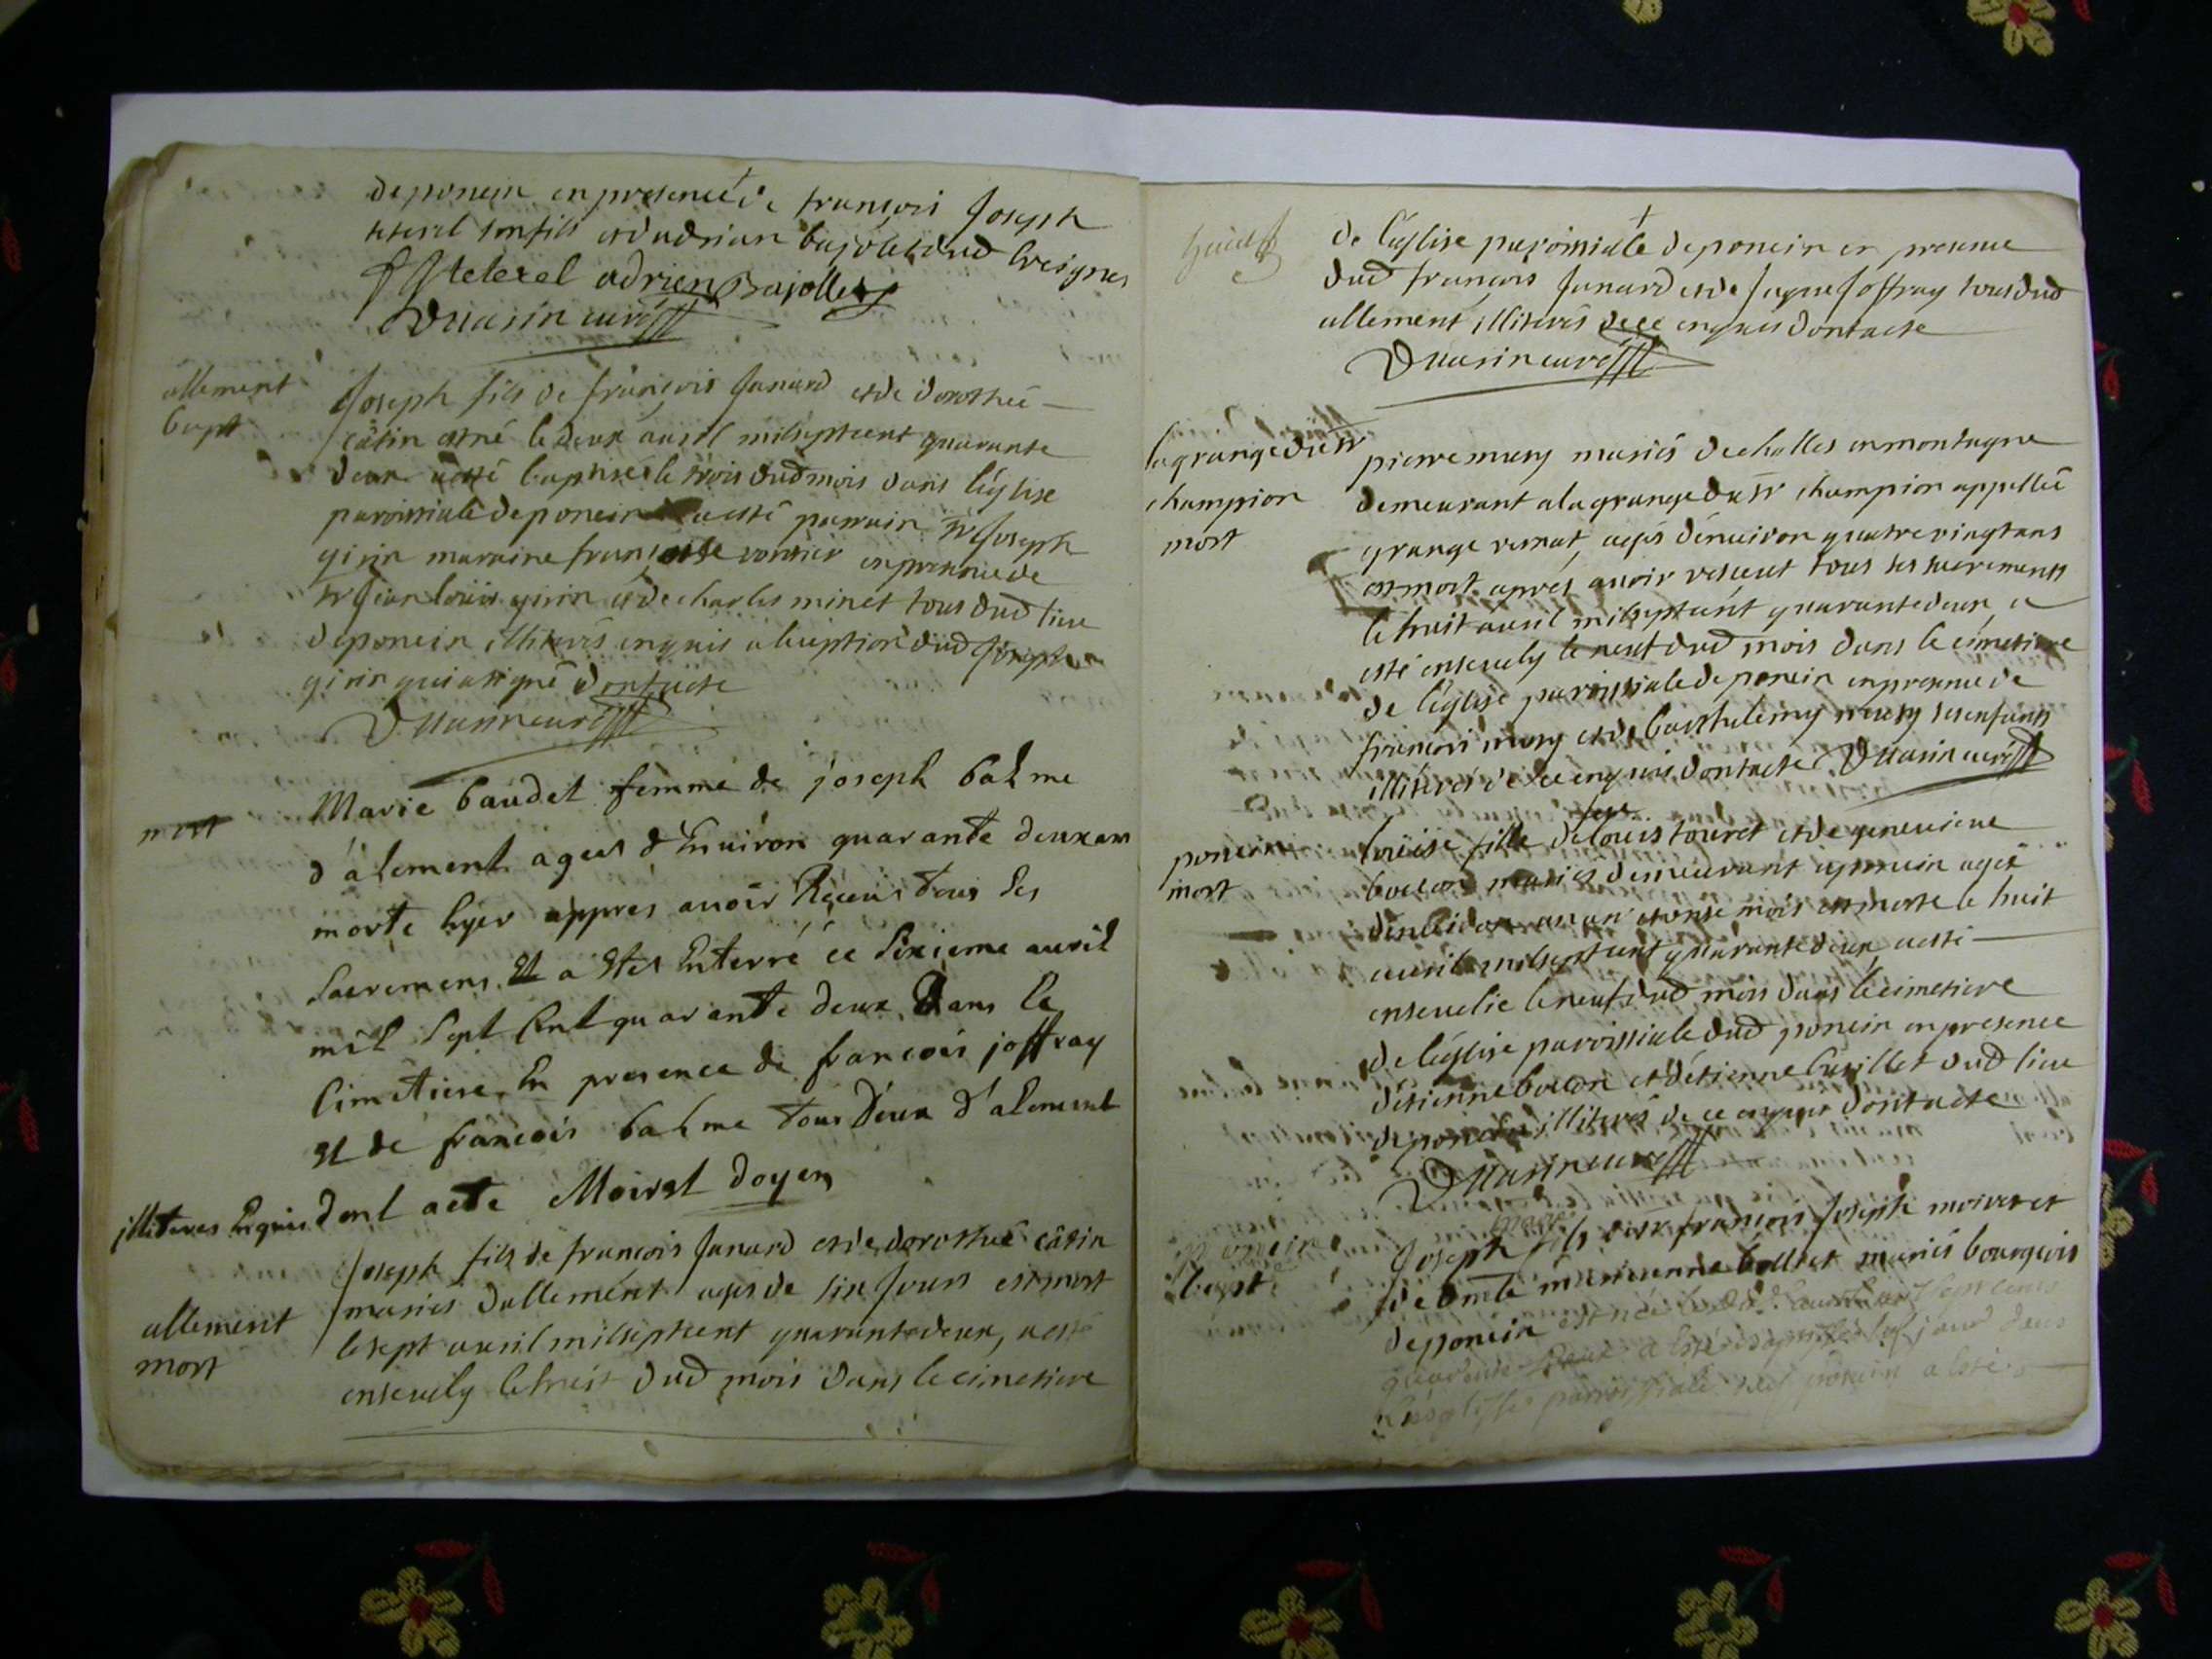 de poncin en presence de francois Joseph
teterel son fils et dadrian bajollet dud
F J teterel adrien Bajollet
Duasin curé
allement
bapt
Joseph fils de francois Janard et de dorothée
câtin est né le deux auril milseptcent quarante
deux a esté baptisé le trois dud mois dans léglise
paroissiale de poncin a esté parrain sr Joseph
girin maraine francoise vontier en presence de
sr Jean louis girin et de charles minet tous dud lieu
de poncin illiterés enquis a lexeption dud Joseph
girin qui a signé dont acte
Duasin curé
mort
Marie baudet femme de joseph balme
d'alement agées d Enuiron quarante deux ans
morte hyer appres auoir Reçeus tous les
sacremens Et a Etes Enterré ce sixieme auril
mil sept Cent quarante deux Dans le
Cimetiere En presence de francois joffray
Et de francois balme tous Deux d'alement
illiteres Enquis dont acte Moiret doyen
allement
mort
Joseph fils de francois Janard et de dorothée câtin
mariés dallemént agés de six Jours est mort
le sept auril milseptcent quarante deux, a esté
enseuely le huit dud mois dans le cimetiere
de l'église paroissiale de poncin en presence
dud francois Janard et de Jaque Joffray tous dud
allement illiterés de ce enquis dont acte
Duasin curé
la grange du sr
champion
mort
pierre mury mariés de cholles en montagne
demeurant a la grange du sr champion appellée
grange agés dénuiron quatre vingt ans
est mort apres auoir receut tous ses sacrements
le huit auril milseptcent quarante deux, a
esté enseuely le neuf dud mois dans le cimetiere
de l'église paroissiale de poncin en presence de
francois mury et de barthelemy mury ses enfants
illiterés de ce enquis dont acte Duasin curé
poncin
mort
loüise fille de louis touret et de geneuieue
bocon mariés demeurant a poncin agée
dénuiron un an et onse mois est morte le huit
auril milseptcent quarante deux, a esté
enseuelie le neuf dud mois dans le cimetiere
de l'église paroissiale dud poncin en presence
détienne bocon et détienne dud lieu
de poncin illiterés de ce enquis dont acte
Duasin curé
poncin
bapt
Joseph fils de sr francois Joseph moiret et
de dmlle marianne bollet mariés bourgeois
de poncin est né sept cent
quarente deux a esté baptisé jour dans
léglise paroissiale dud poncin a esté